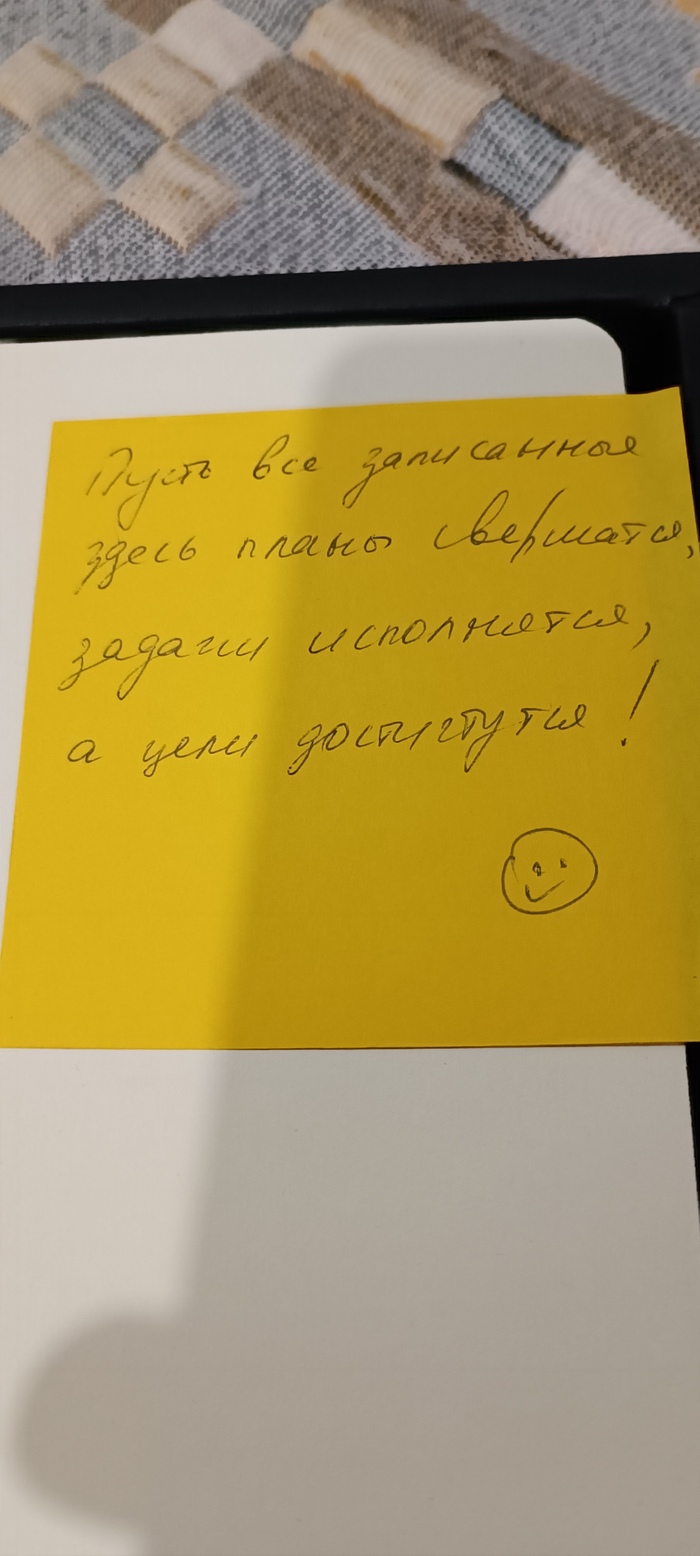 Пусть все записанные
здесь планы свершатся,
задачи исполнятся,
а цели достигнутся!